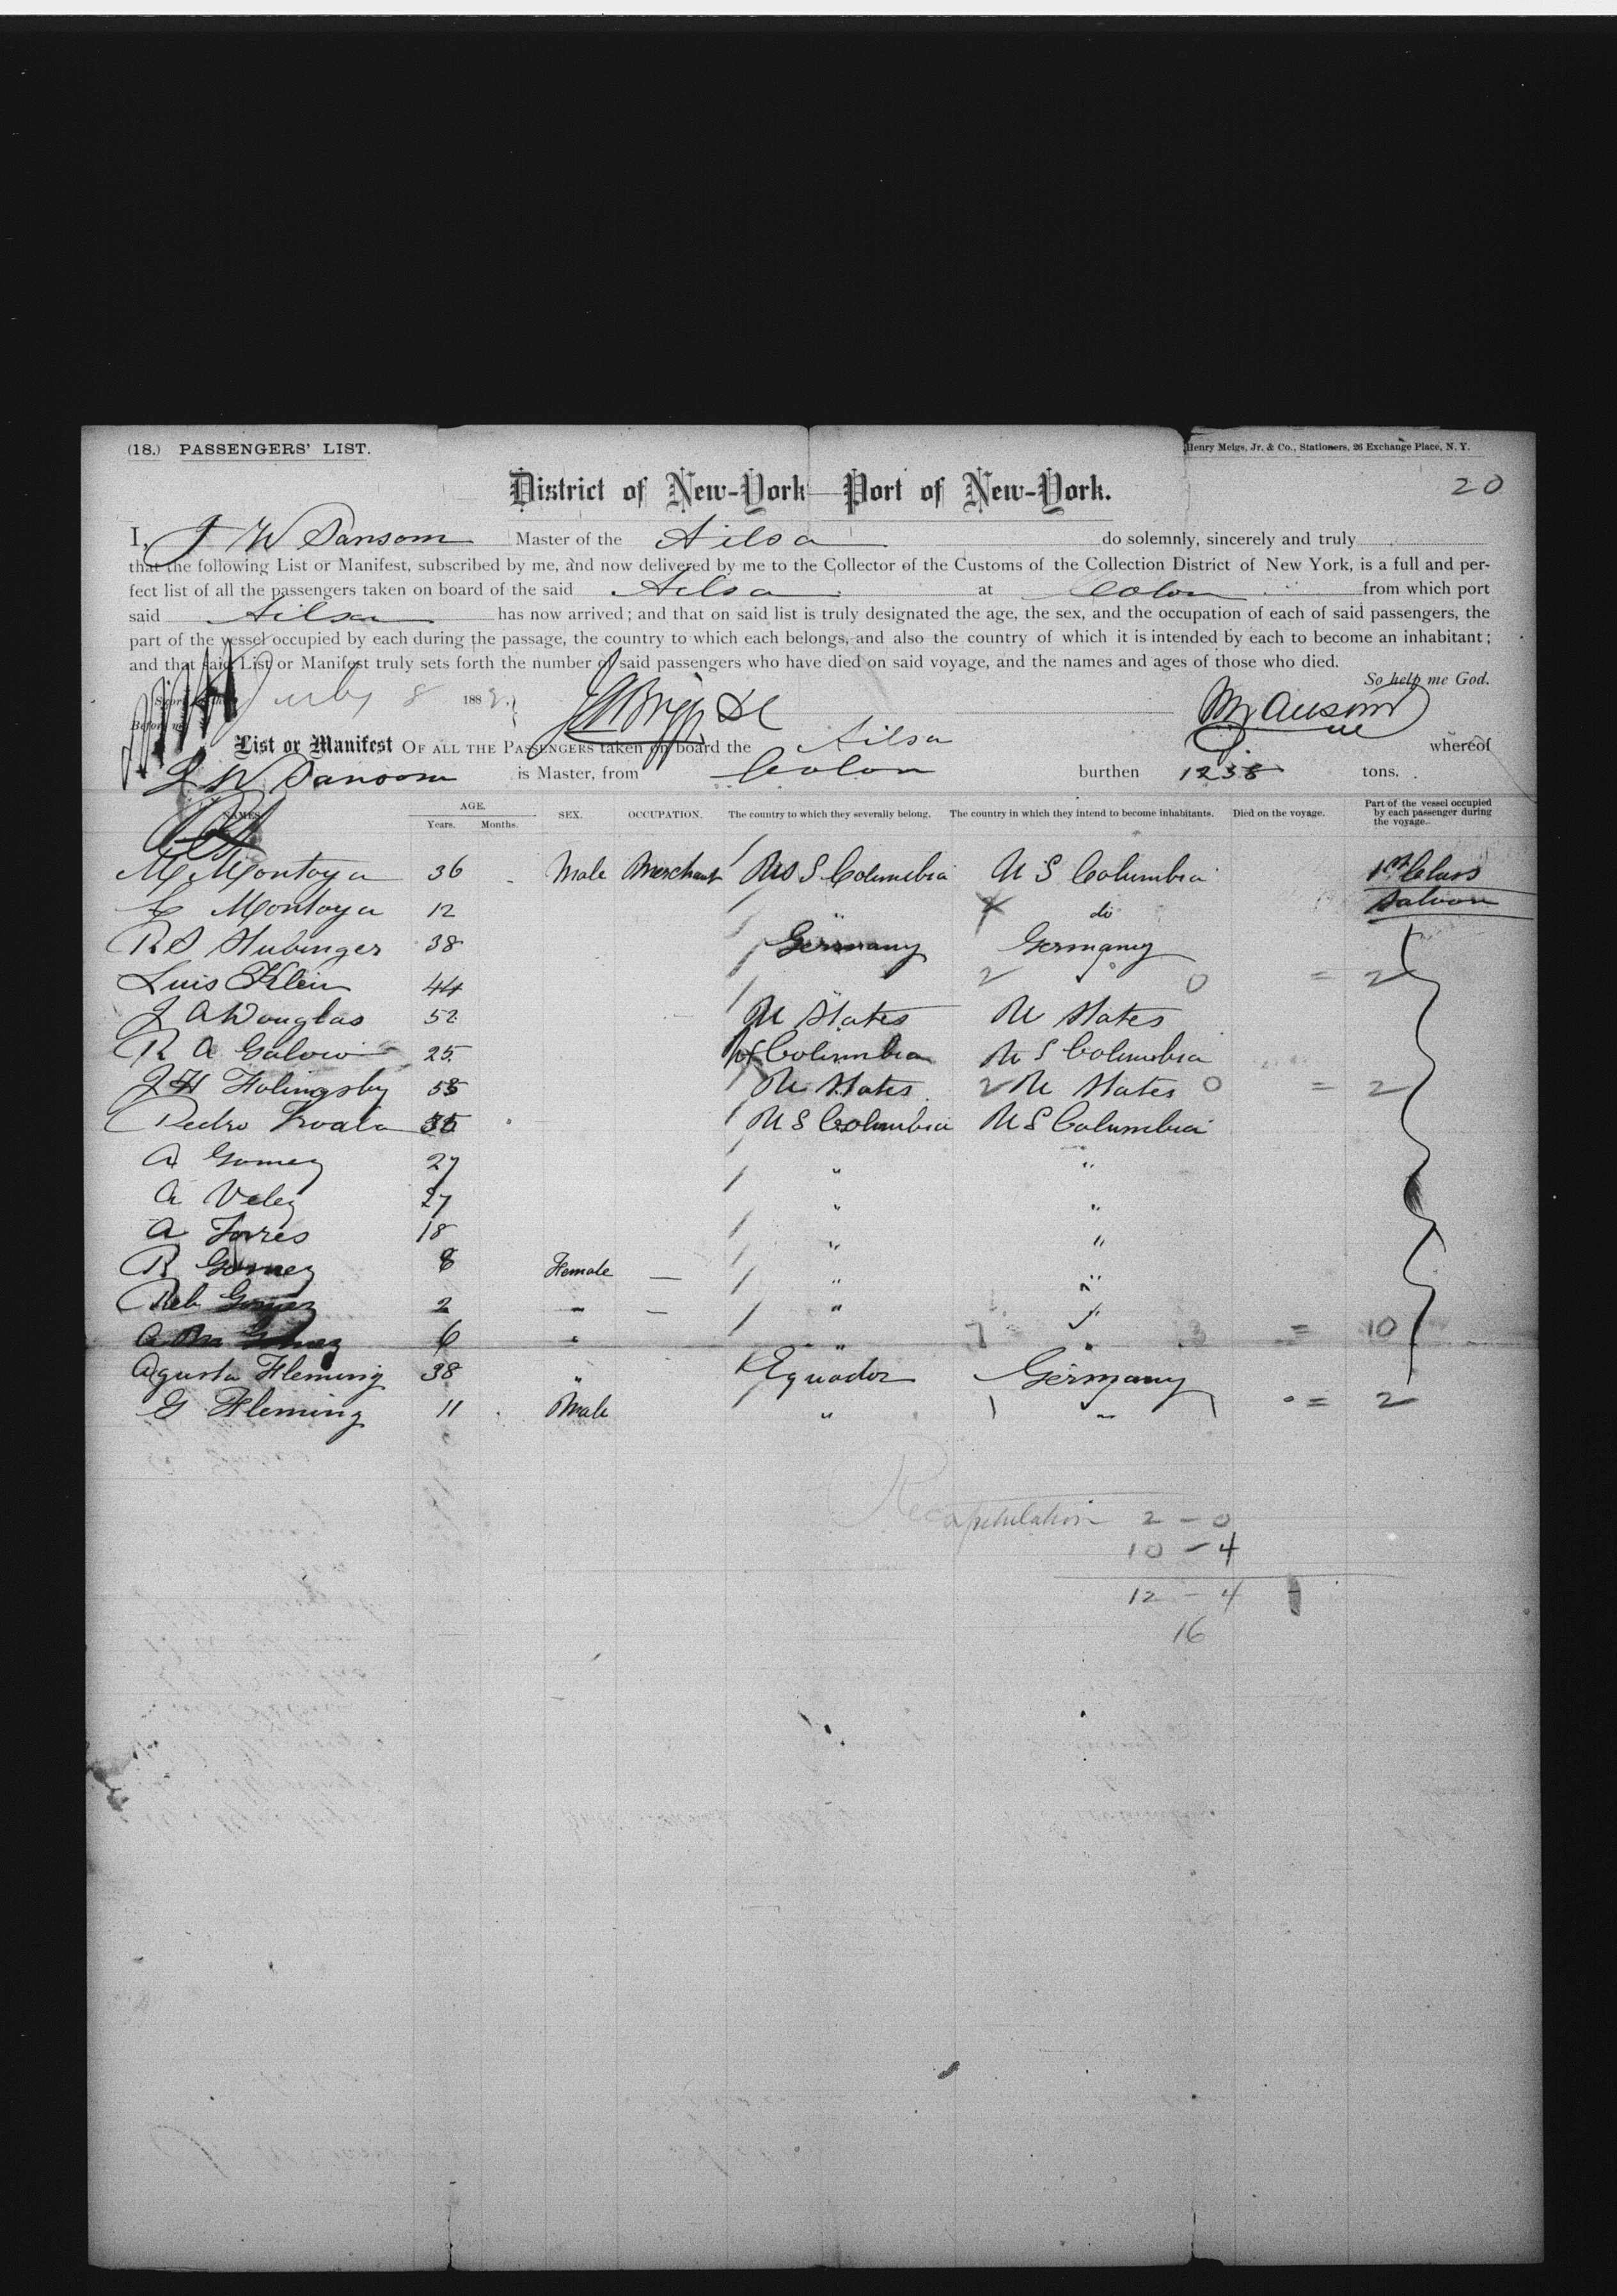 (18.) PASSENGERS' LIST.
Henry Meigs, Jr. & Co., Stationers, 26 Exchange Place, N. Y.
District of New-York Port of New-York.
20
I, J W Sansom Master of the Ailsa do solemnly, sincerely and truly
that the following List or Manifest, subscribed by me, and now delivered by me to the Collector of the Customs of the Collection District of New York, is a full and per-
fect list of all the passengers taken on board of the said Ailsa at Colon from which port
said Ailsa has now arrived; and that on said list is truly designated the age, the sex, and the occupation of each of said passengers, the
part of the vessel occupied by each during the passage, the country to which each belongs, and also the country of which it is intended by each to become an inhabitant;
and that said List or Manifest truly sets forth the number of said passengers who have died on said voyage, and the names and ages of those who died.
So help me God.
July 8 188
List or Manifest OF ALL THE PASSENGERS taken on board the Ailsa whereof
J W Sansom is Master, from Colon burthen 1238 tons.
NAMES AGE. Years. Months. SEX. OCCUPATION. The country to which they severally belong. The country in which they intend to become inhabitants. Died on the voyage. Part of the vessel occupied by each passenger during the voyage.
M Montoya 36 Male Merchant U S Columbia U S Columbia 1st Class
Montoya 12 " do Saloon
R S Stubinger 38 Germany Germany
Luis Klein 44 " 2 " 0 = 2
J A Douglas 52 U States U States
R A 25 Columbia U S Columbia
J H Holingsby 55 U States 2 U States 0 = 2
Pedro 35 U S Columbia U S Columbia
A Gomez 27 " "
A Velez 27 " "
A Torres 18 " "
R Gomez 8 Female — " "
Reb Gomez 2 " — " "
A Gomez 6 " " 7 " 3 = 10
Agusta Fleming 38 " Equador Germany
G Fleming 11 Male " 1 " 1 = 2
Recapitulation 2 - 0
10 - 4
12 - 4
16